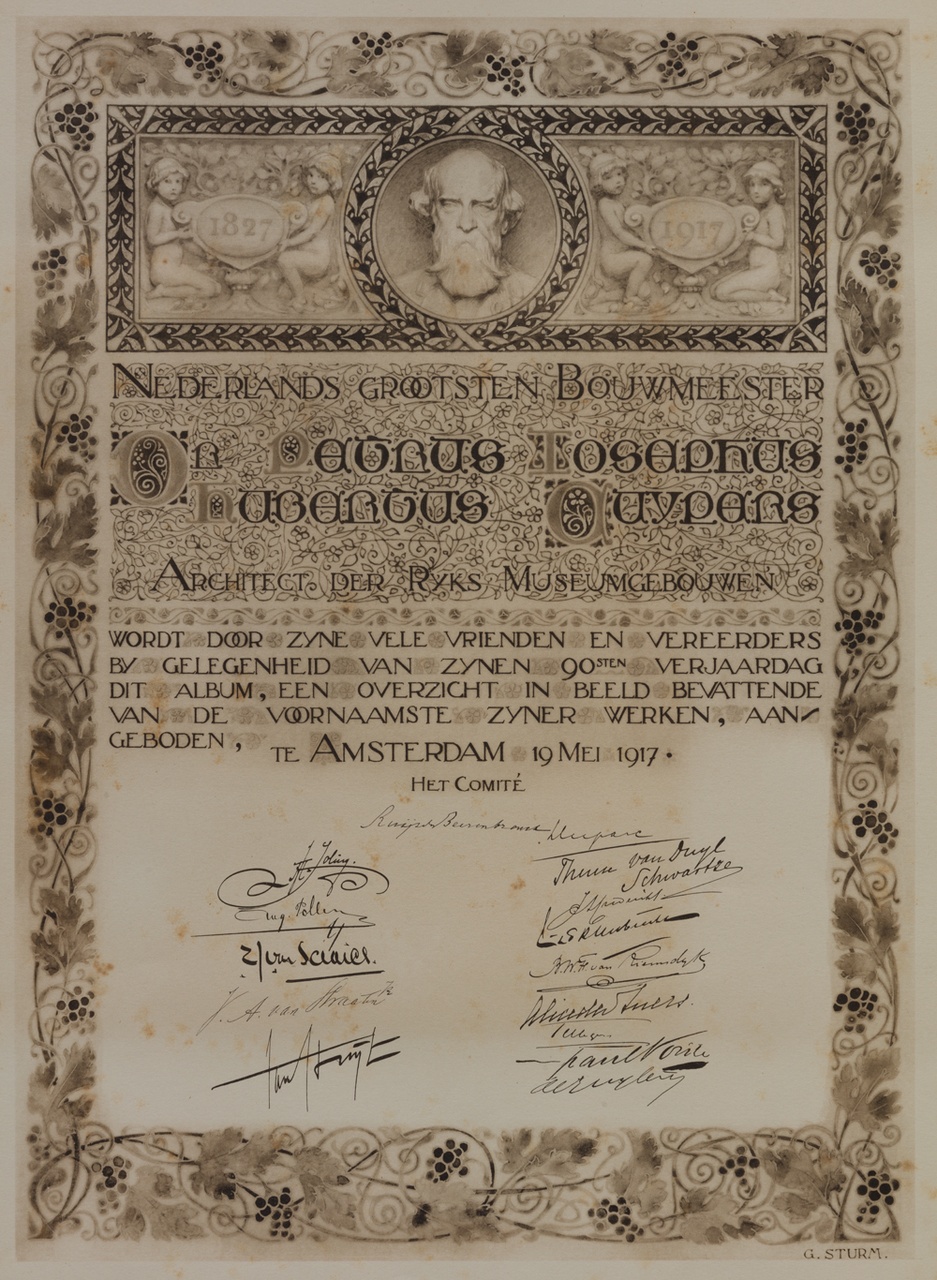 1827
1917
NEDERLANDS GROOTSTEN BOUWMEESTER
Dr. PETRUS IOSEPHUS
HUBERTUS CUYPERS
ARCHITECT DER RYKS MUSEUMGEBOUWEN
WORDT DOOR ZYNE VELE VRIENDEN EN VEREERDERS
BY GELEGENHEID VAN ZYNEN 90STEN VERJAARDAG
DIT ALBUM, EEN OVERZICHT IN BEELD BEVATTENDE
VAN DE VOORNAAMSTE ZYNER WERKEN, AAN-
GEBODEN, TE AMSTERDAM 19 MEI 1917.
HET COMITÉ
Therese van Duyl
Schwartze
Jan Stuyt
G. STURM.